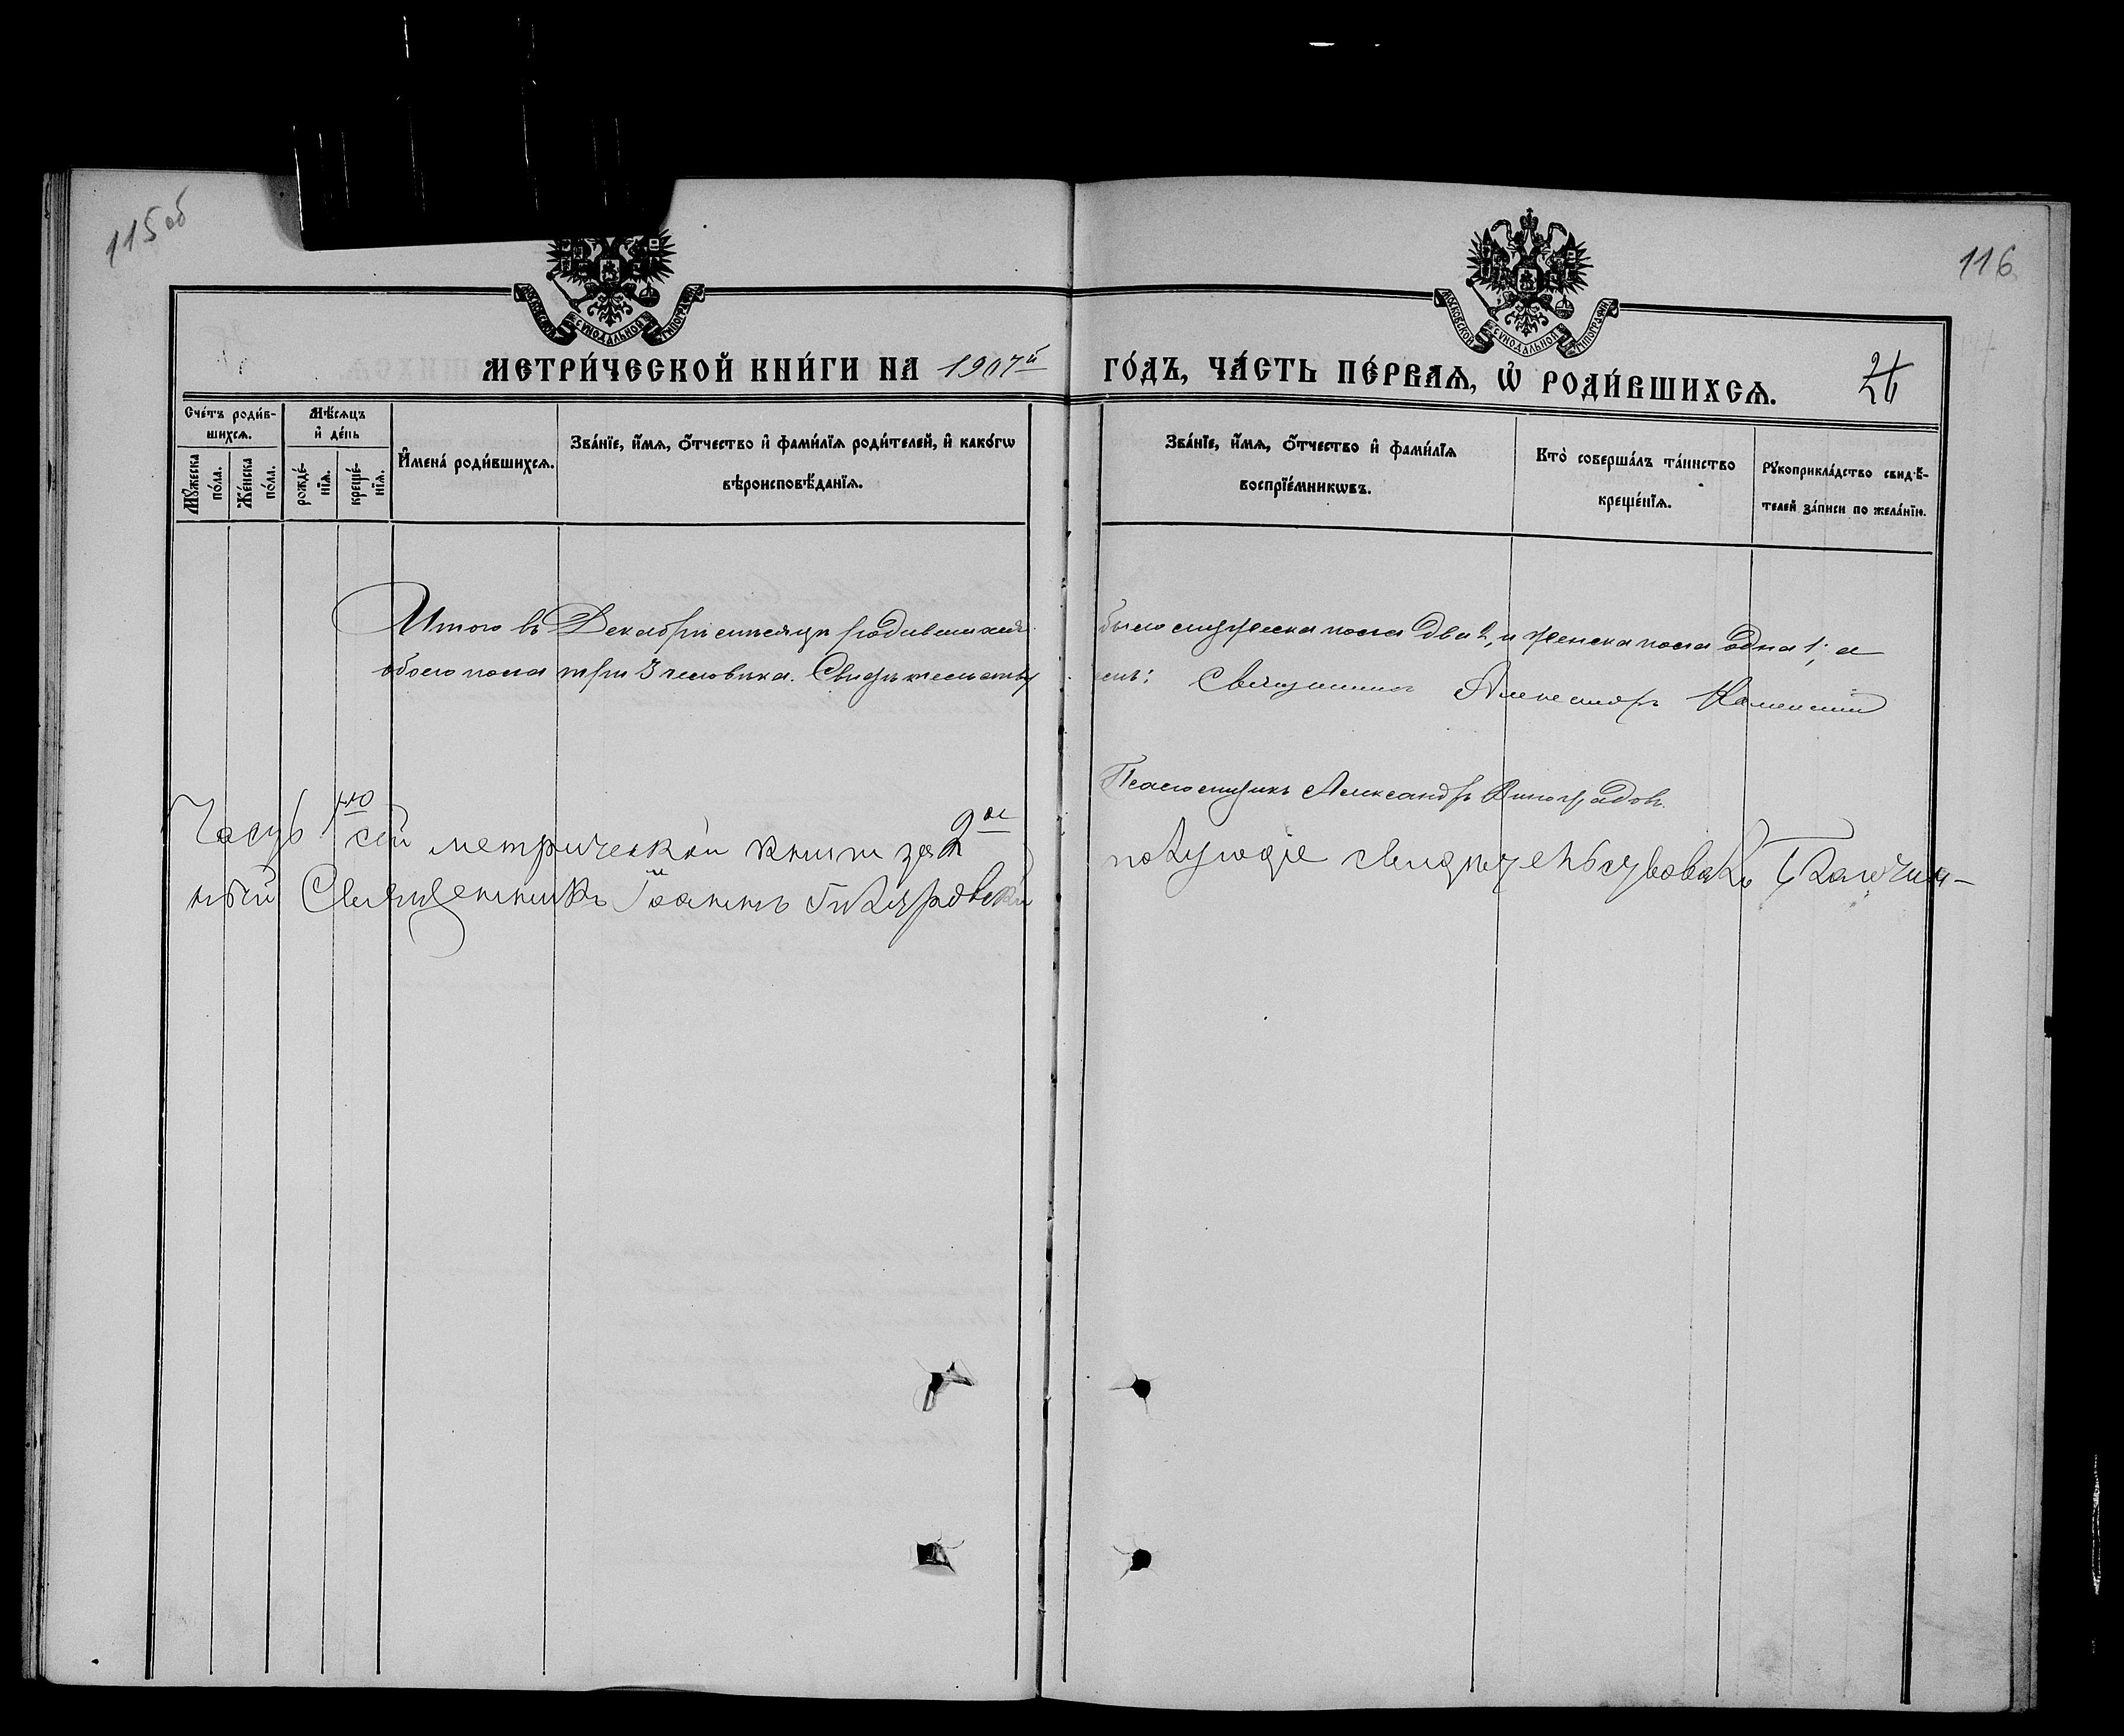 115 об
116
МОСКОВСКОЙ СѴНОДАЛЬНОЙ ТИПОГРАФІИ
МОСКОВСКОЙ СѴНОДАЛЬНОЙ ТИПОГРАФІИ
МЕТРИ́ЧЕСКОЙ КНИ́ГИ НА 1907й ГО́ДЪ, ЧА́СТЬ ПЕ́РВАѦ, Ѡ҆ РОДИ́ВШИХСѦ.
Сче́тъ роди́в-
шихсѧ.
Мꙋ́жеска
по́ла.
Же́нска
по́ла.
Мѣ́сѧцъ
и҆ де́нь
рожде́-
нїѧ.
креще́-
нїѧ.
И҆мена̀ роди́вшихсѧ.
Зва́нїе, и҆́мѧ, ѻ҆́тчество и҆ фами́лїѧ роди́телей, и҆ како́гѡ
вѣроисповѣ́данїѧ.
Зва́нїе, и҆́мѧ, ѻ҆́тчество и҆ фами́лїѧ
воспрїе́мникѡвъ.
Кто̀ соверша́лъ та́инство
креще́нїѧ.
Рꙋкоприкла́дство свидѣ́-
телей за́писи по жела́нїю.
Итого въ Декабрѣ мѣсяцѣ родившихся было мужеска пола два 2, и женска пола одна 1; а
обоего пола три 3 человѣка. Свидѣтельству емъ: Священникъ Александръ Каменскій
Псаломщикъ Александръ Виноградовъ.
Часть 1ую сей метрической книги за 2ое полугодіе свидѣтельствовалъ Благочин-
ный Священникъ Іоаннъ